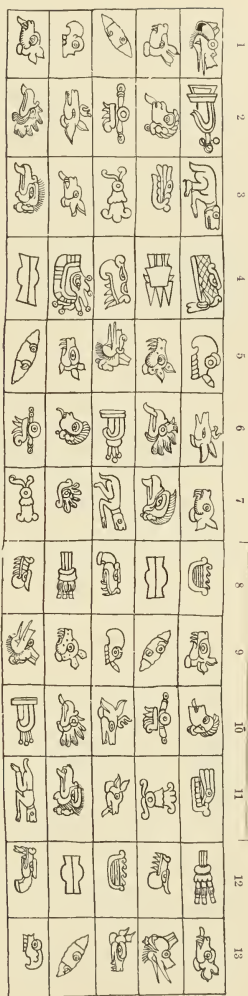 1 2 3 4 5 6 7 8 9 10 11 12 13